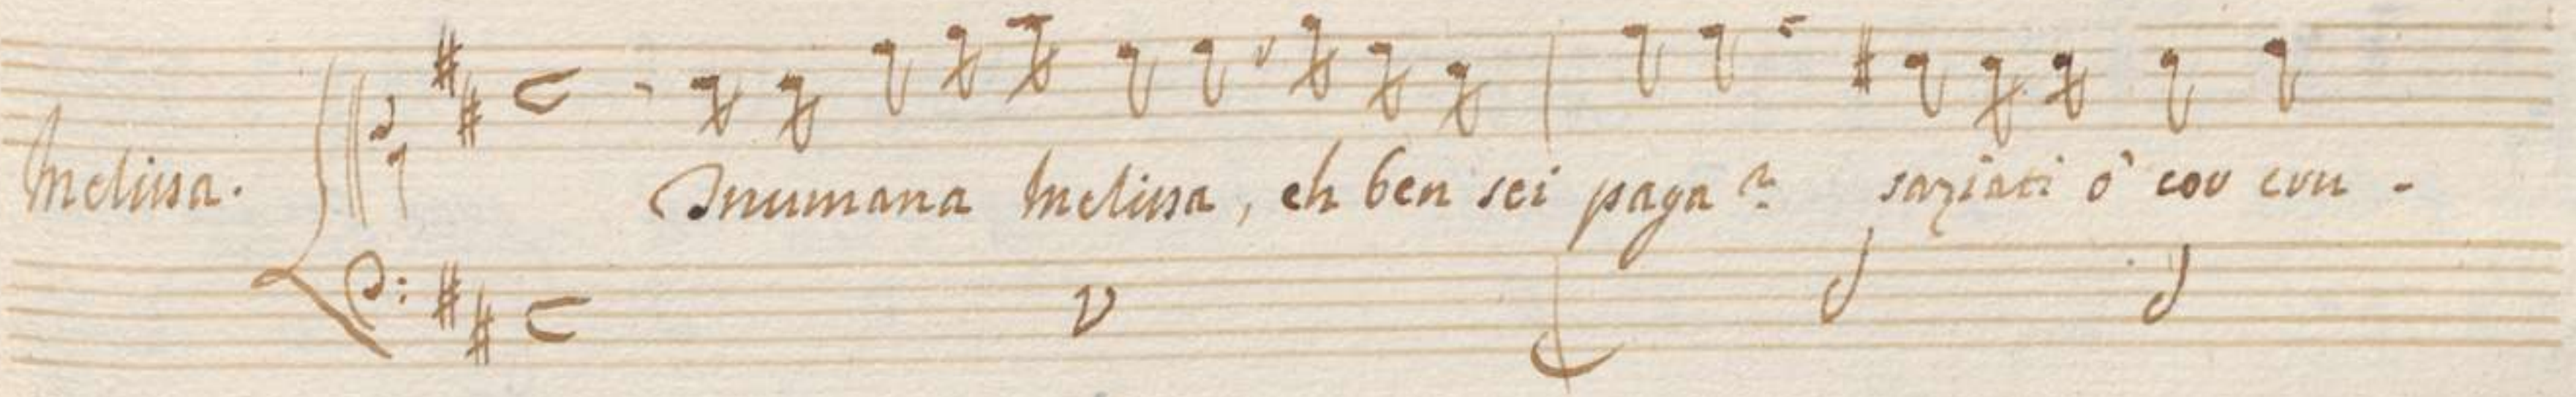 Melissa.
Inumana Melissa, eh ben sei paga? saziati ò cor cru -